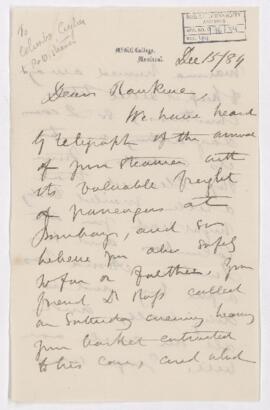 To
Columbo Ceylon
to P.O. Bombay
McGill College,
Montreal.
Dec 15/84
Dear Rankine,
We have heard
by telegraph of the arrival
of your steamer with
its valuable freight
of passengers at
Bombay, and so
believe you also safely
so far on further. Your
friend Dr Ross called
on Saturday evening having
your basket entrusted
to his care, and which